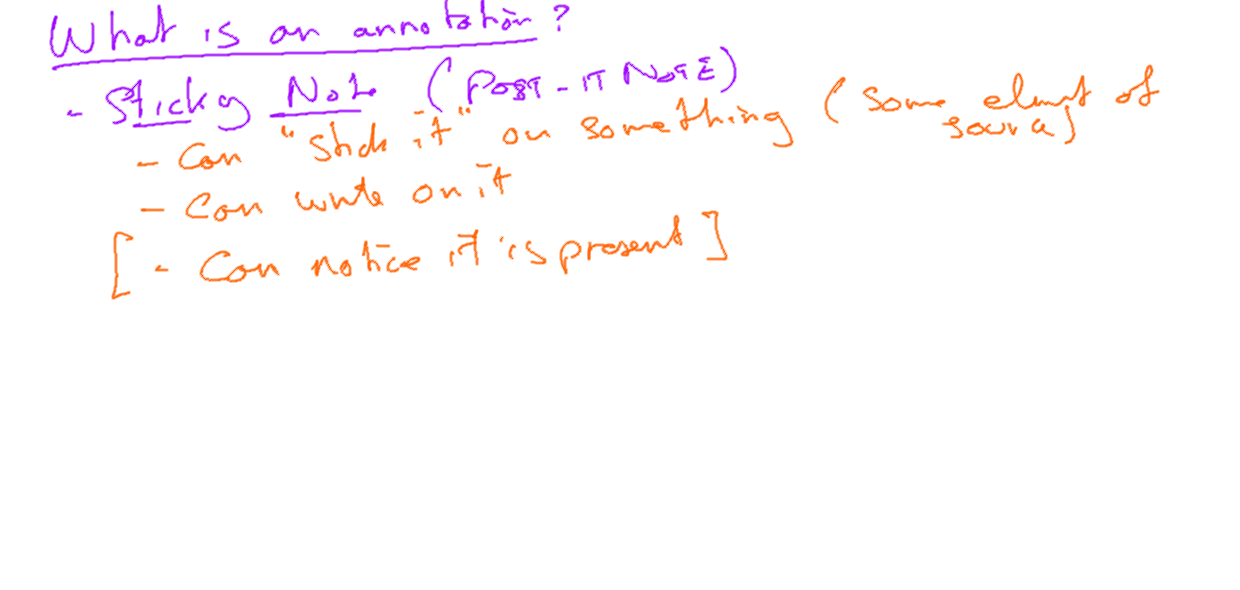 What is an annotation?
- Sticky Note (POST-IT NOTE)
- Can "Stick it" on something (some element of source)
- Can write on it
[- Can notice it is present]